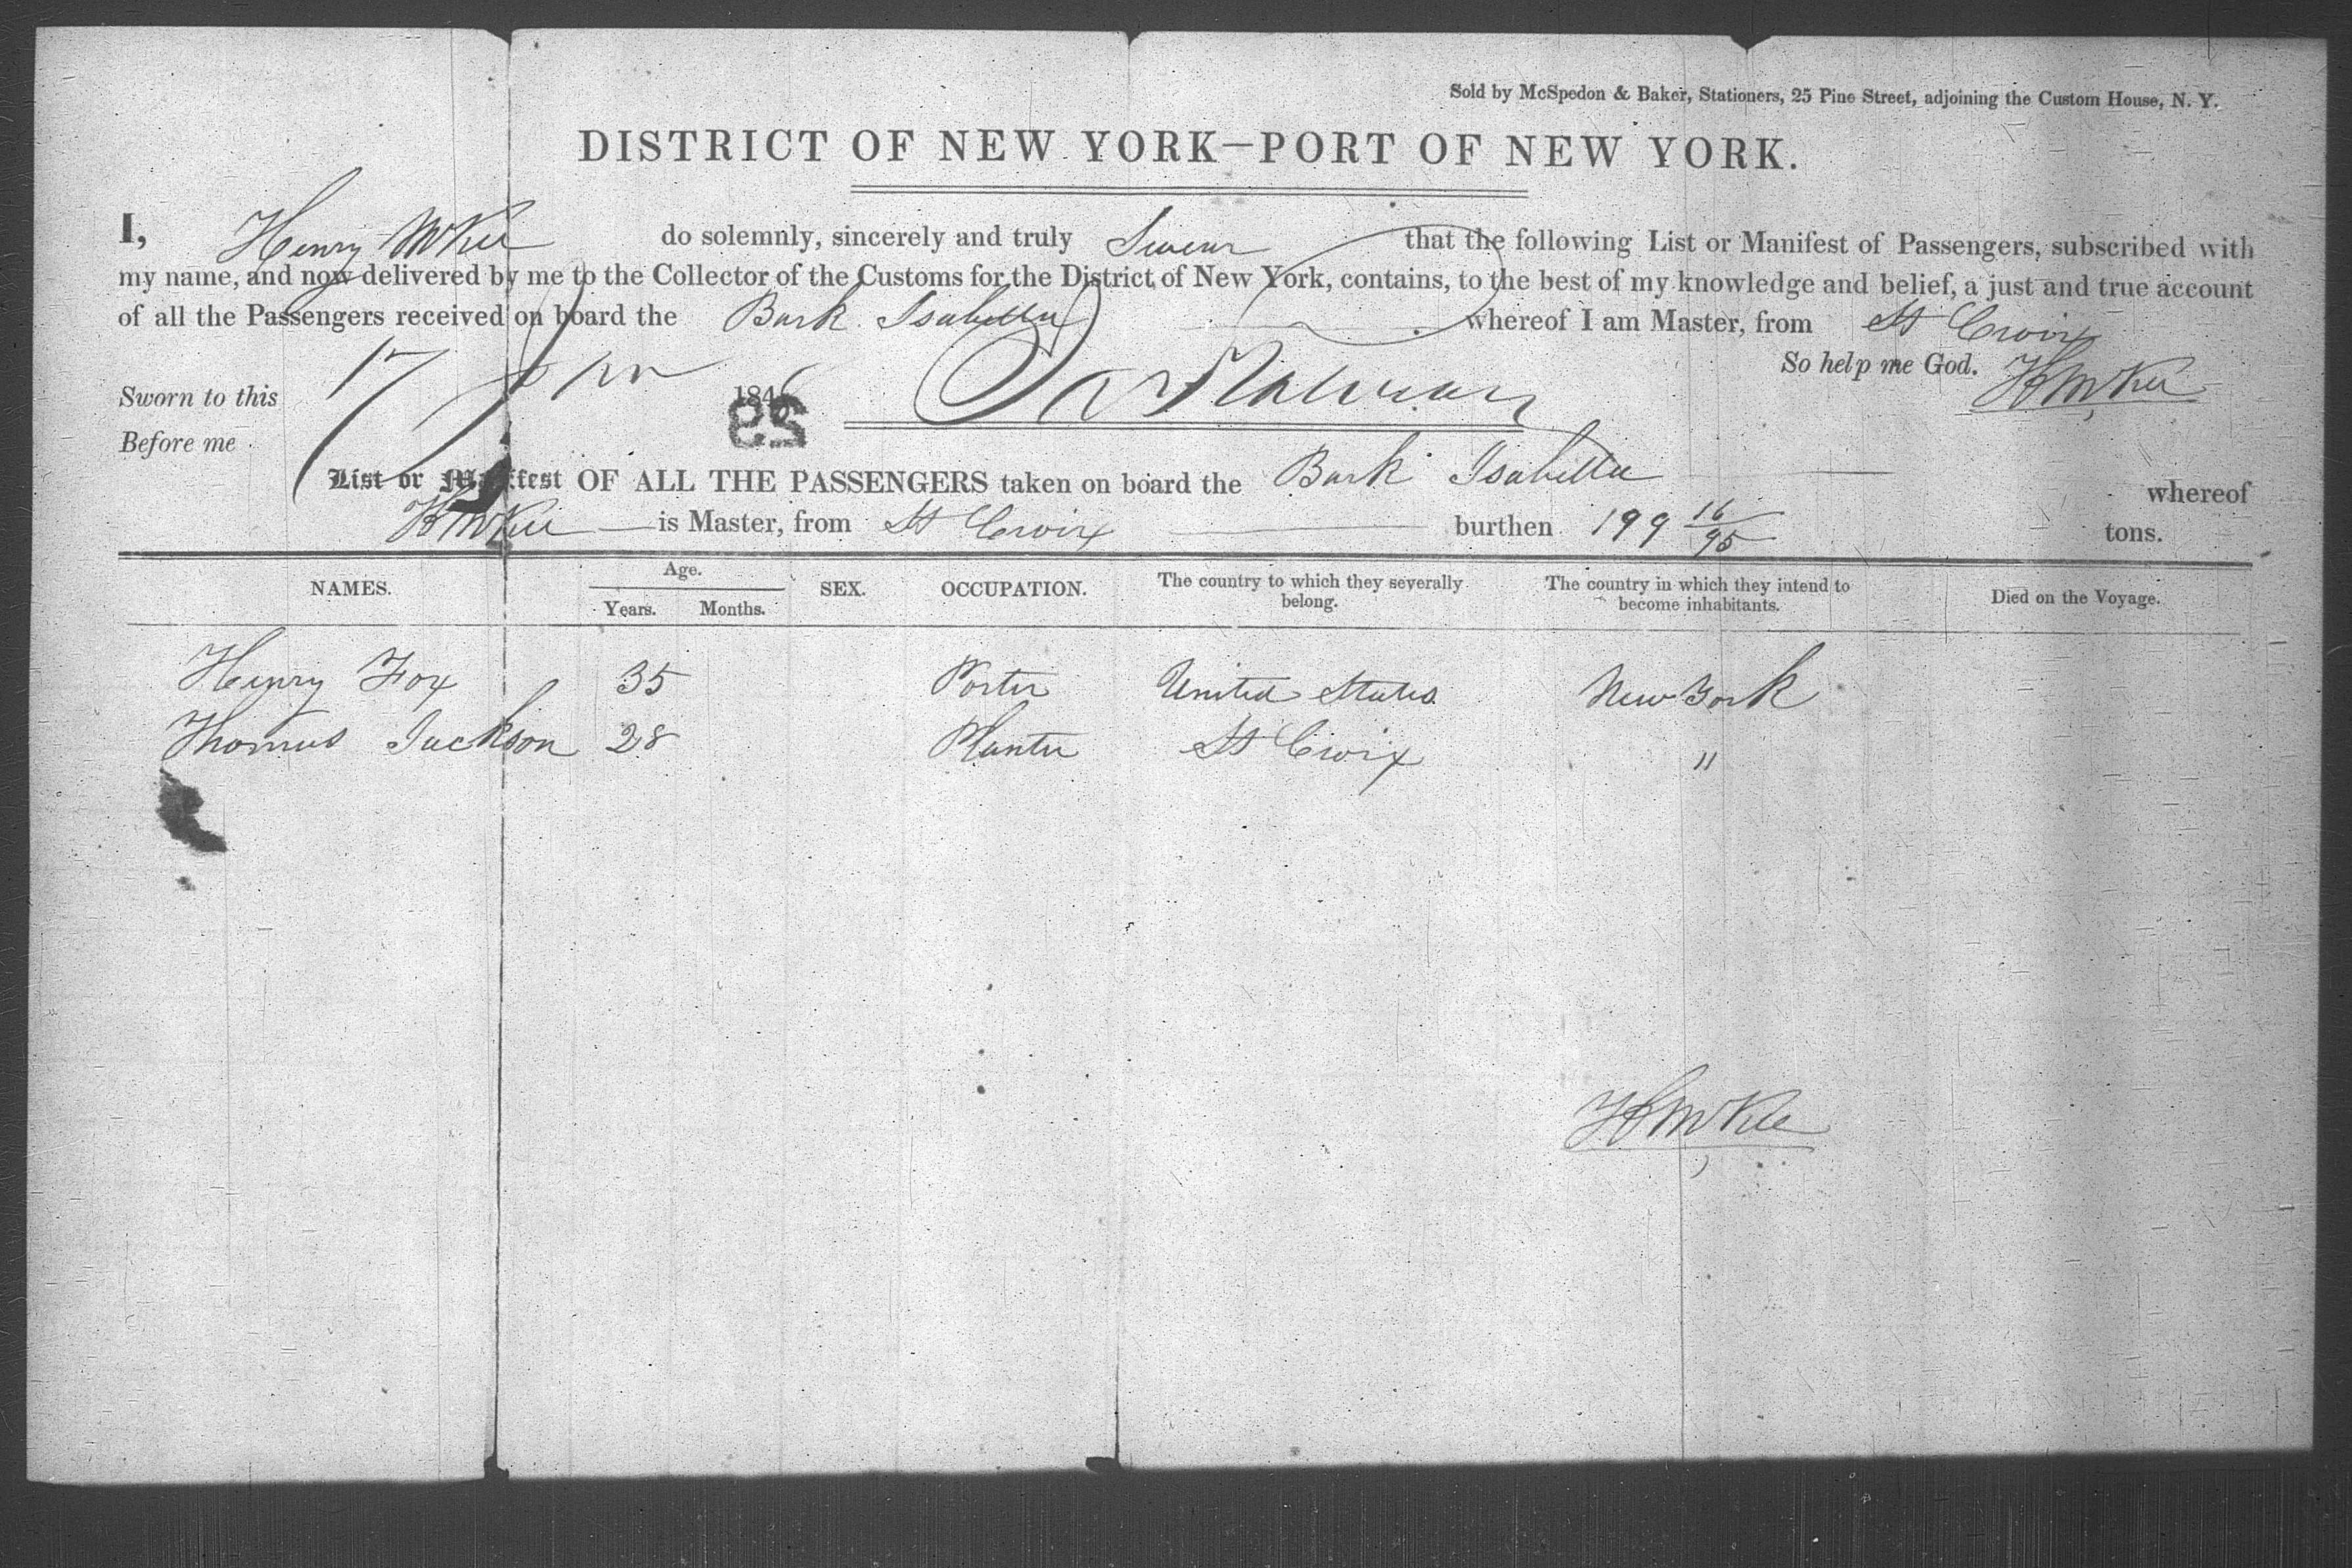 Sold by McSpedon & Baker, Stationers, 25 Pine Street, adjoining the Custom House, N. Y.
DISTRICT OF NEW YORK—PORT OF NEW YORK.
I, Henry McKee do solemnly, sincerely and truly Swear that the following List or Manifest of Passengers, subscribed with
my name, and now delivered by me to the Collector of the Customs for the District of New York, contains, to the best of my knowledge and belief, a just and true account
of all the Passengers received on board the Bark Isabella whereof I am Master, from St Croix
So help me God. H McKee
Sworn to this 17 Jan 1846
Before me
List or Manifest OF ALL THE PASSENGERS taken on board the Bark Isabella whereof
H McKee is Master, from St Croix burthen 199 16/95 tons.
NAMES. Age. Years. Months. SEX. OCCUPATION. The country to which they severally belong. The country in which they intend to become inhabitants. Died on the Voyage.
Henry Fox 35 Porter United States New York
Thomas Jackson 28 Planter St Croix "
H McKee